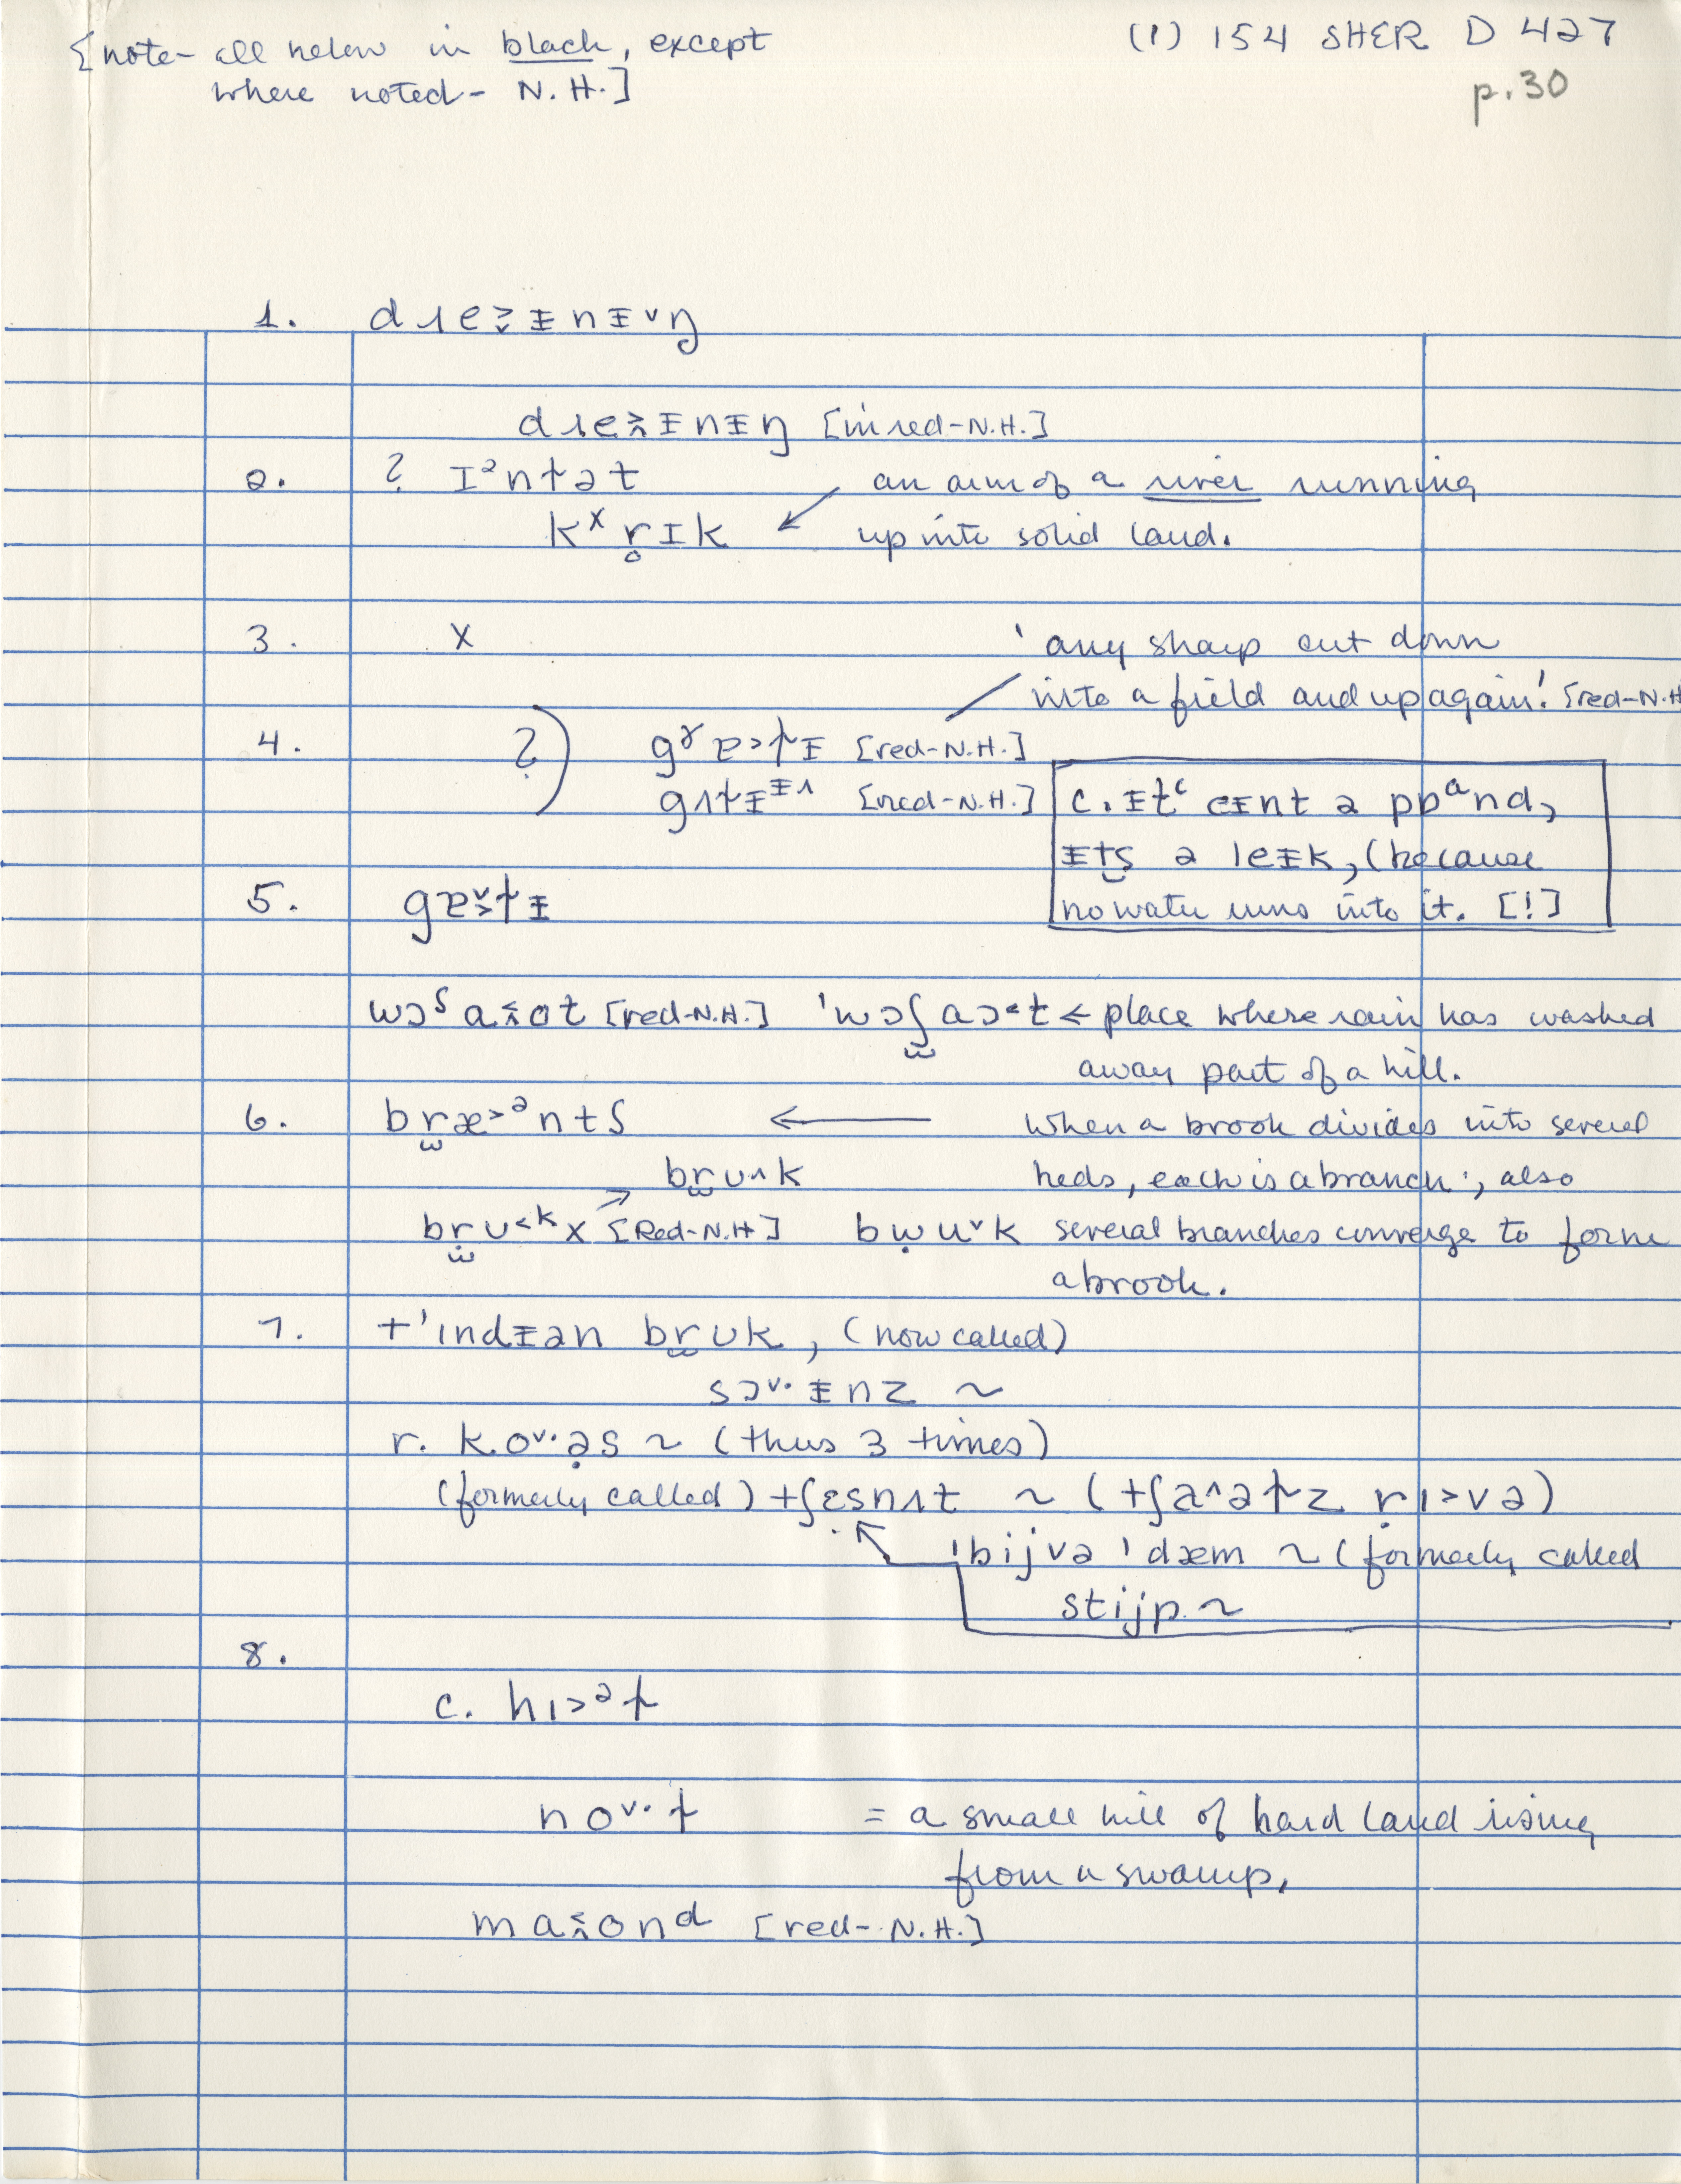 {note- all below in black, except
where noted- N.H.]
(1) 154 SHER D 427
p.30
1. dɹeᵻnᵻŋ
dɹeᵻnᵻŋ [in red-N.H.]
2. ? Iᵊnɫət an arm of a river running
kˣr̥ɪk ↙ up into solid land.
3. X 'any sharp cut down
into a field and up again! [red-N.H
4. ?) [red-N.H.]
[red-N.H.] c. ᵻtᶜ eᵻnt ə pɒᵃnd,
ᵻts ə leᵻk, (because
5. no water runs into it. [!]
[red-N.H.] 'wɔʃ ← place where rain has washed
away part of a hill.
6. bræ>ᵊntʃ ← when a brook divides into several
brʊ^k beds, each is a branch; also
brʊ<ᵏx [Red-N.H] several branches converge to form
a brook.
7. +'indᵻən brʊk, (now called)
sɔᵛ·ᵻnz ~
r. k.oᵛ·əs ~ (thus 3 times)
(formerly called) +ʃɛsnʌt ~ (+ʃa^əɫz rɪ>və)
'bijvə 'dæm ~ (formerly called
stijp ~
8.
c. hɪ>ᵊɫ
noᵛ·ɫ = a small hill of hard land rising
from a swamp,
[red- N.H.]